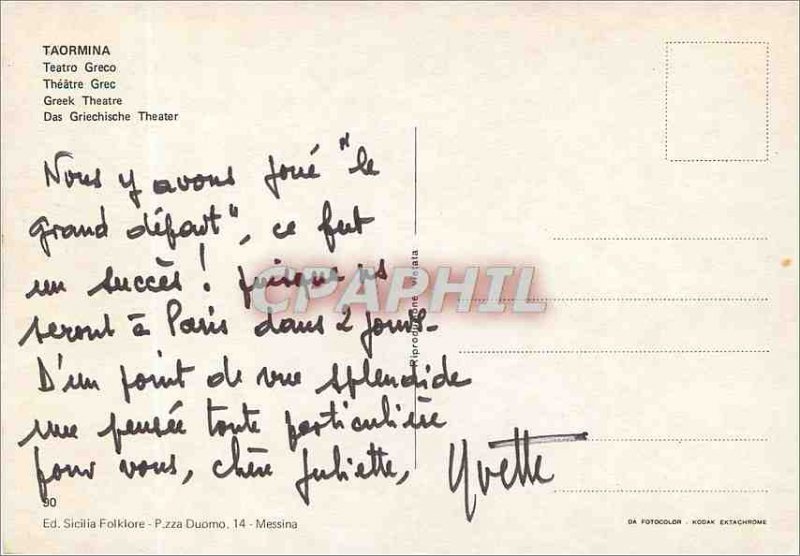 TAORMINA
Teatro Greco
Théâtre Grec
Greek Theatre
Das Griechische Theater
Nous y avons joué "le
grand départ", ce fut
un succès! puisque ns
seront à Paris dans 2 jours.
D'un point de vue splendide
une pensée toute particulière
pour vous, chère Juliette,
Yvette
Riproduzione vietata
CPAPHIL
90
Ed. Sicilia Folklore - P.zza Duomo, 14 - Messina
DA FOTOCOLOR - KODAK EKTACHROME